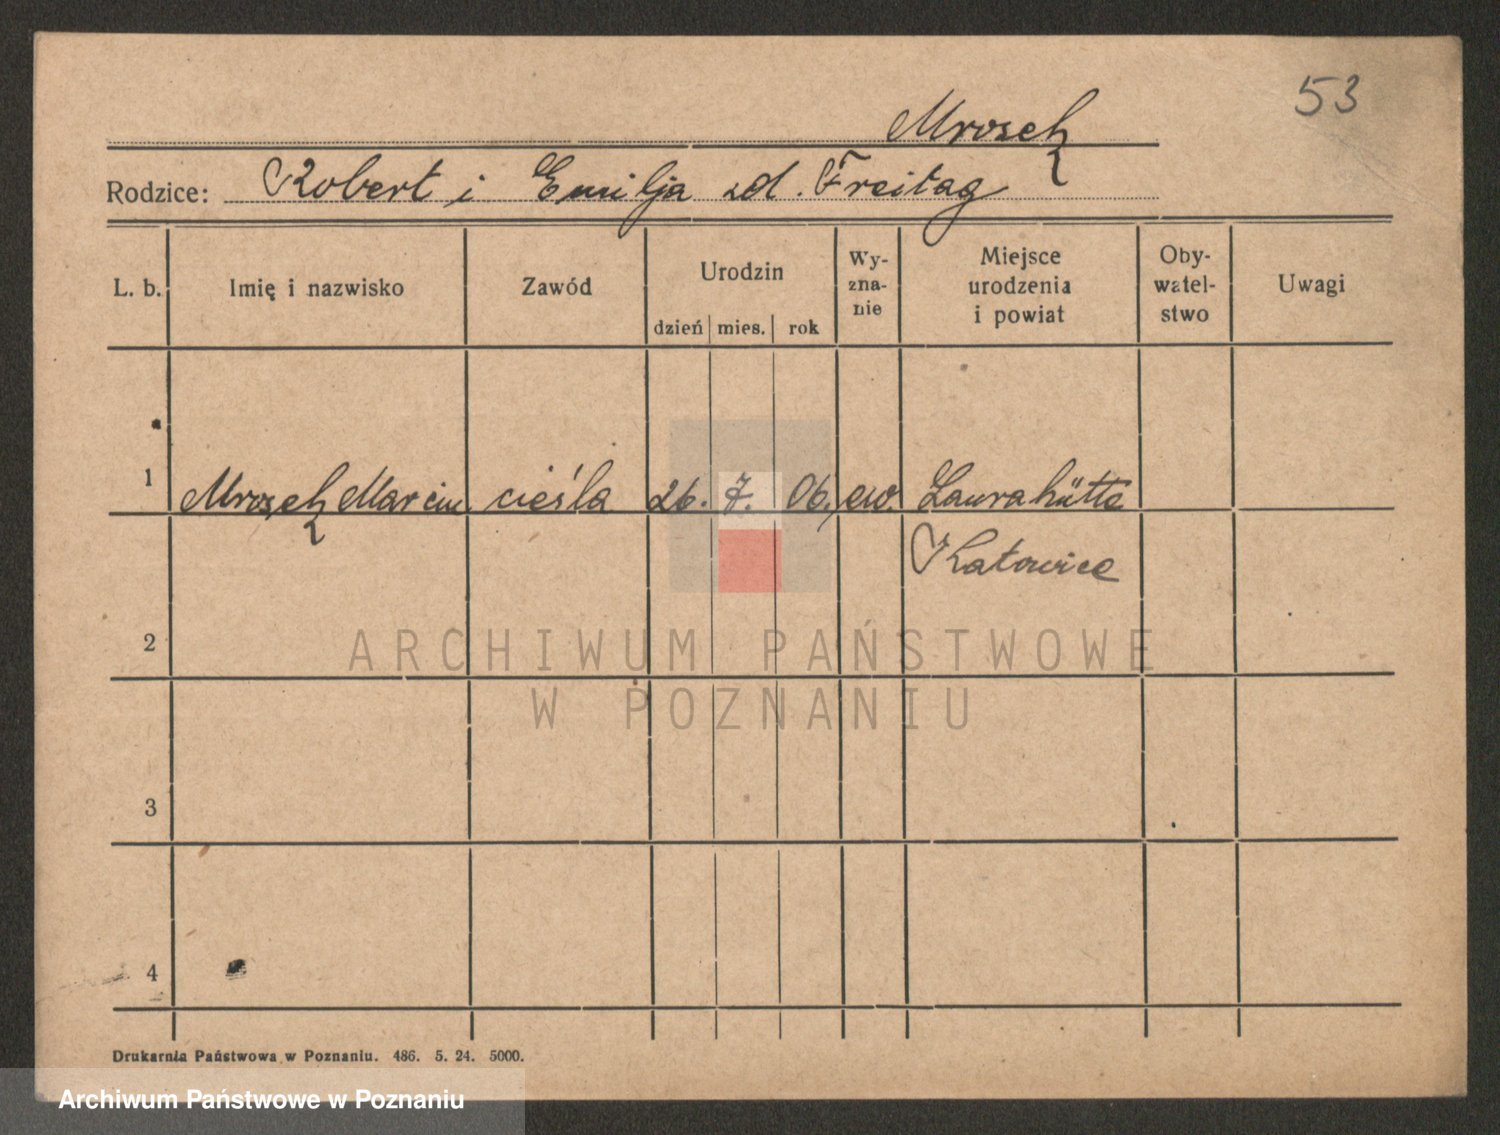 53
Mrosek
Rodzice: Robert i Emilja zd. Freitag
L. b. Imię i nazwisko Zawód Urodzin dzień mies. rok Wy-zna-nie Miejsce urodzenia i powiat Oby-watel-stwo Uwagi
1 Mrosek Marcin cieśla 26. 7. 06. ew. Laurahütte
Katowice
2
ARCHIWUM PAŃSTWOWE
W POZNANIU
3
4
Drukarnia Państwowa w Poznaniu. 486. 5. 24. 5000.
Archiwum Państwowe w Poznaniu